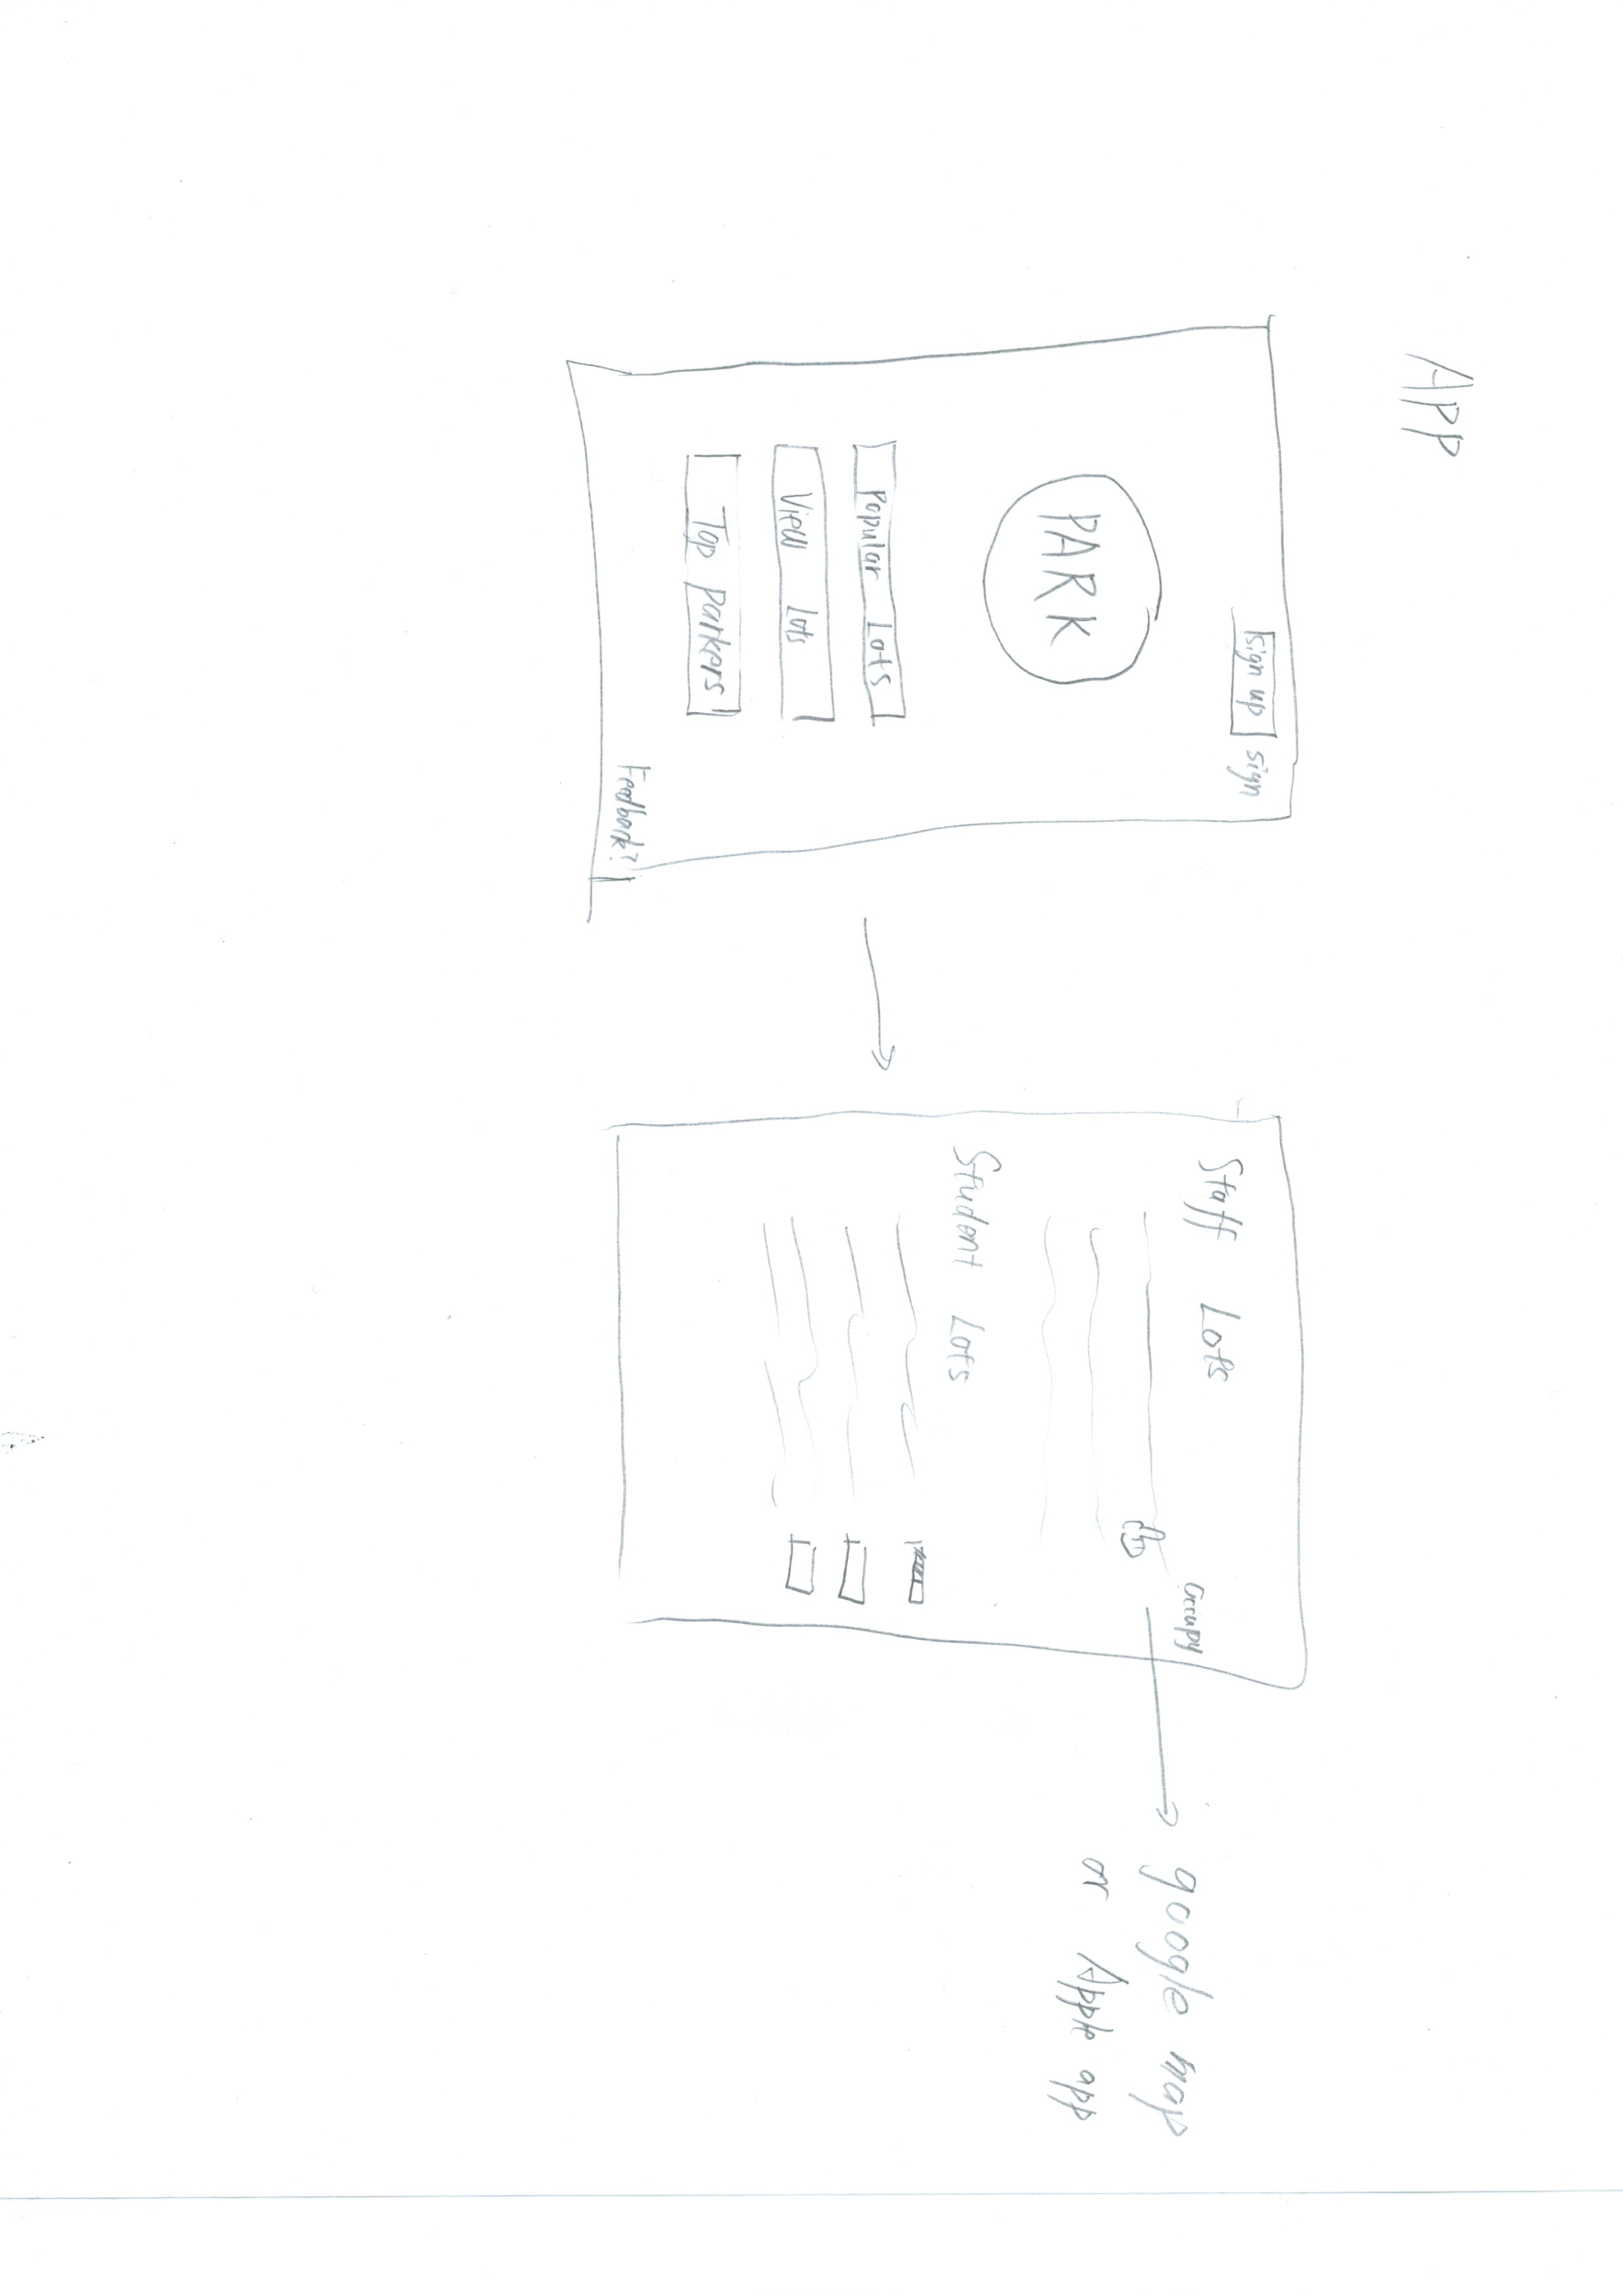 APP
Sign up Sign
PARK
Popular Lots
View Lots
Top parkers
Feedback?
Staff Lots
Occupy
Student Lots
google map
or Apple app